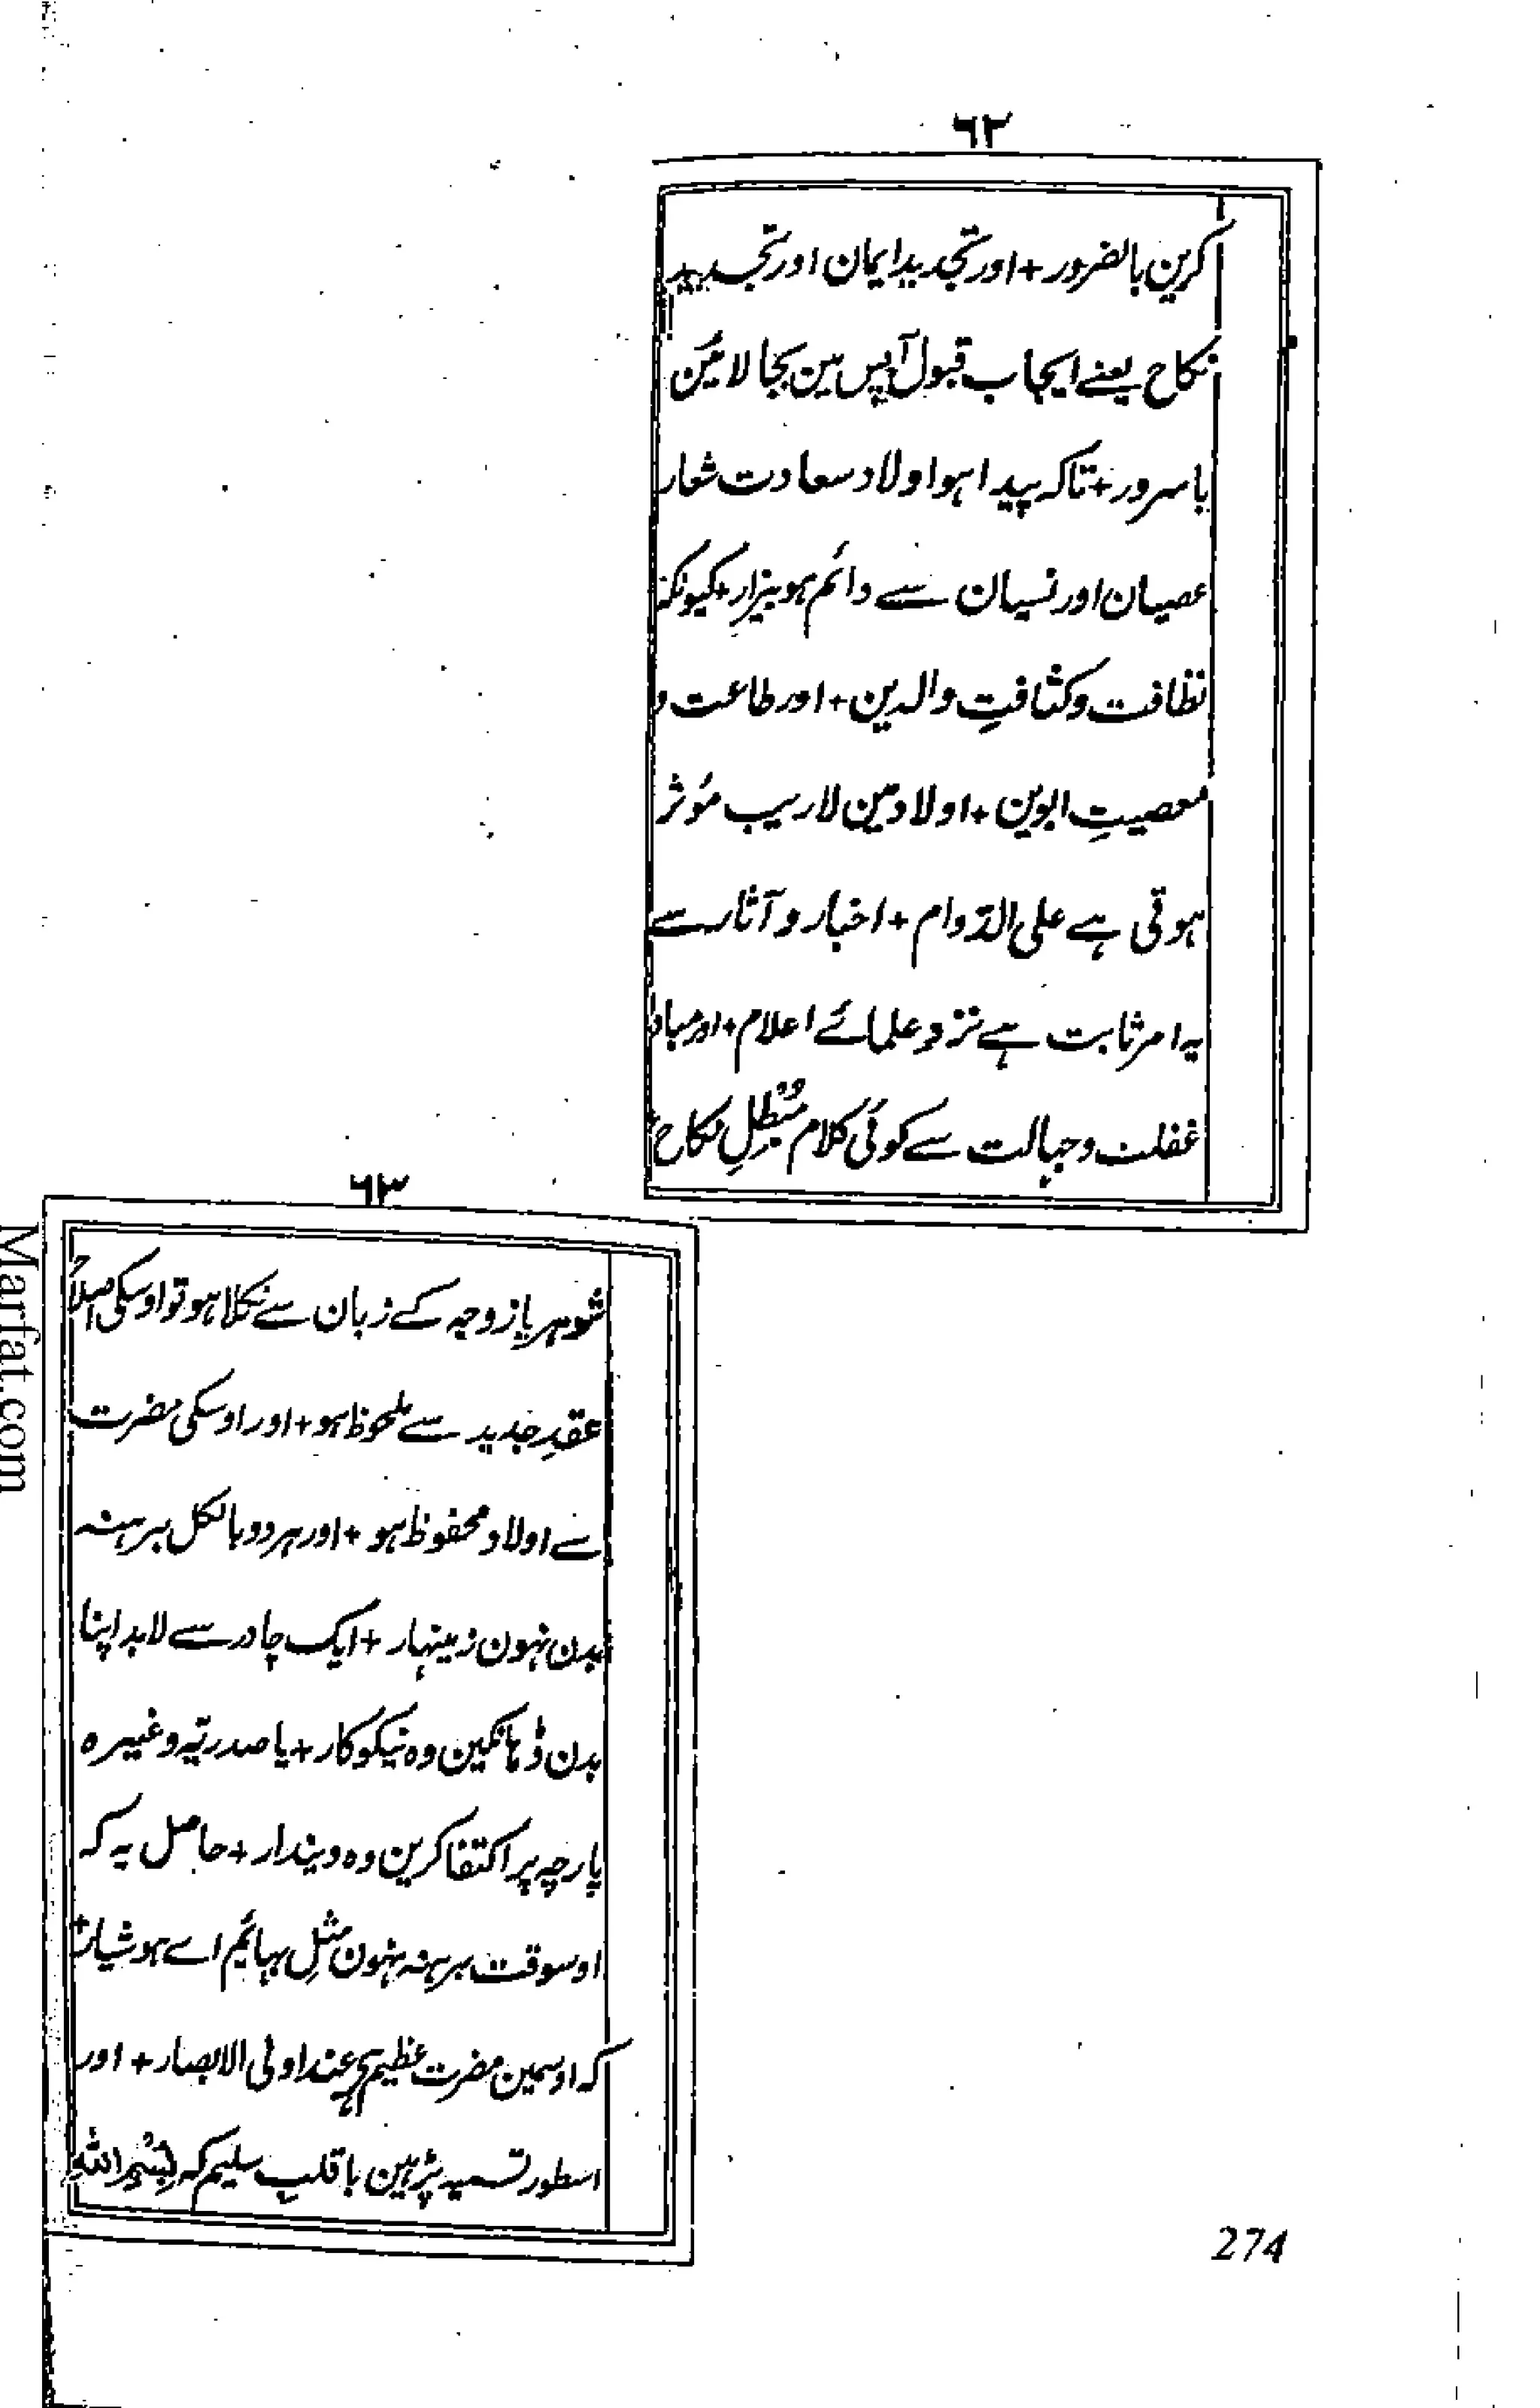 ٦٢
کرین بالضرور + اور تجدید ایمان اور تجدید
نکاح یعنے ایجاب قبول آپس مین بجا لائین
با سرور + تاکہ پیدا ہو اولاد سعادت شعار
عصیان اور نسیان سے دائم ہو بیزار + کیونکہ
نظافت و کثافتِ والدین + اور طاعت و
معصیتِ ابوین + اولاد مین لاریب مؤثر
ہوتی ہے علی الدّوام + اخبار و آثار سے
یہ امر ثابت ہے نزد علمائے اعلام + اور مبادا
غفلت و جہالت سے کوئی کلام مُبْطِلِ نکاح
٦٣
شوہر یا زوجہ کے زبان سے نکلا ہو تو اوسکی اصلاح
عقدِ جدید سے ملحوظ ہو + اور اوسکی مضرت
سے اولاد محفوظ ہو + اور ہر دو بالکل برہنہ
بدن نہون زینہار + ایک چادر سے لابد اپنا
بدن ڈہانکین وہ نیکوکار + یا صدریّہ وغیرہ
پارچہ پر اکتفا کرین وہ دیندار + حاصل یہ کہ
اوسوقت برہنہ نہون مثلِ بہائم اے ہوشیار +
کہ اوسمین مضرت عظیم ہے عند اولی الابصار + اور
اسطور تسمیہ پڑہین با قلبِ سلیم کہ بِسْمِ اللّٰهِ
274
Marfat.com